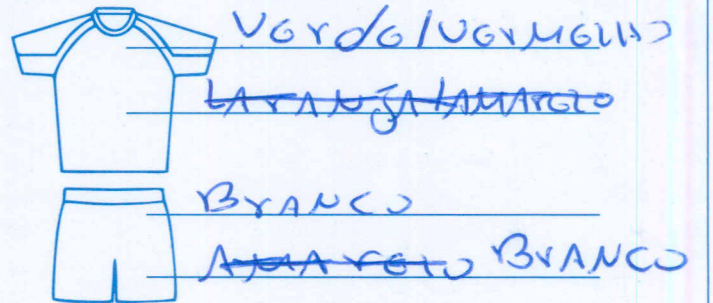 Verde/Vermelho
LARANJA/AMARELO
BRANCO
AMARELO BRANCO